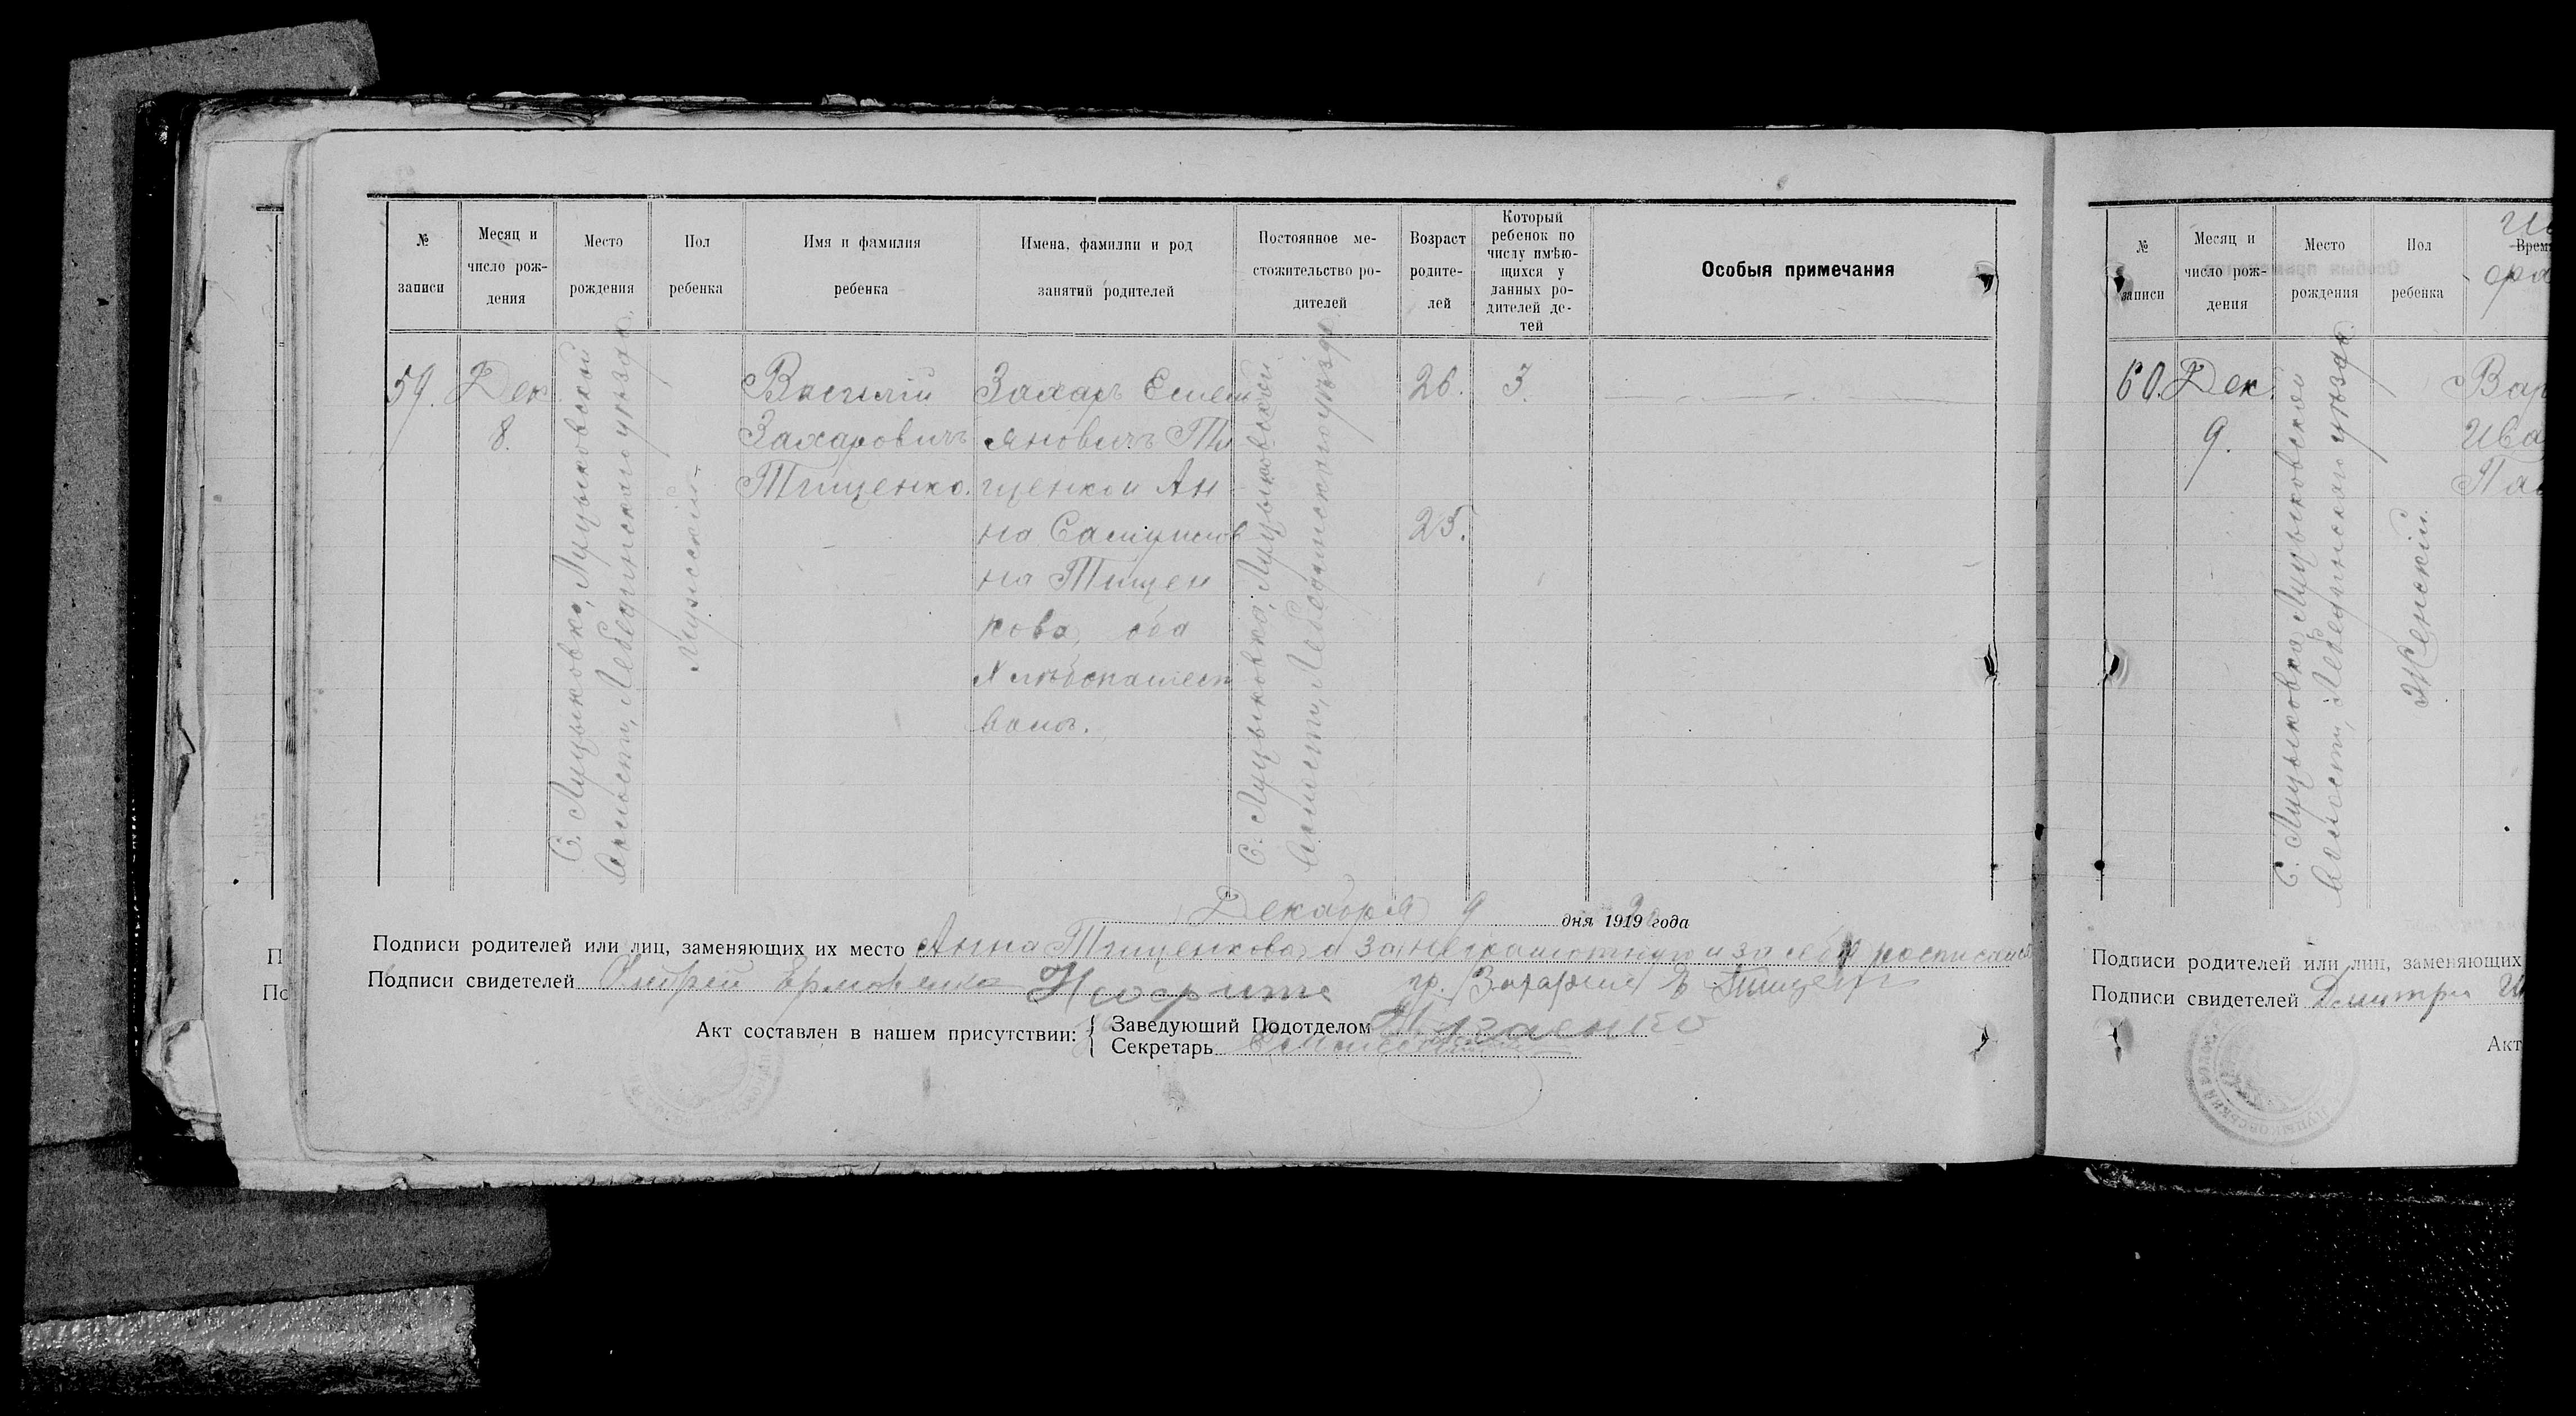 № записи
Месяц и число рождения
Место рождения
Пол ребенка
Имя и фамилия ребенка
Имена, фамилии и род занятий родителей
Постоянное местожительство родителей
Возраст родителей
Который ребенок по числу имѣющихся у данных родителей детей
Особыя примечания
59.
Дек.
8.
С. Луцыковка, Луцыковской
волости, Лебединского уѣзда.
Мужский
Василій
Захаровичъ
Тищенко.
Захаръ Емель
яновичъ Ти
щенко и Ан
на
на Тищен
кова, оба
хлѣбопашест
вомъ.
С. Луцыковка, Луцыковской
волости, Лебединского уѣзда.
26.
25.
3.
Декабря 9 дня 1919 года
Подписи родителей или лиц, заменяющих их место Анна Тищенкова а за неграмотную и за себя росписался
Подписи свидетелей Андрей Ермоленко
гр. Захарий Е Тищенко
Акт составлен в нашем присутствии:
Заведующий Подотделом
Секретарь
№ записи
Месяц и число рождения
Место рождения
Пол ребенка
60.
Дек.
9.
С. Луцыковка, Луцыковской
волости, Лебединского уѣзда.
Женский.
Вар
Ива
Подписи родителей или лиц, заменяющих
Подписи свидетелей Дмитри
Акт